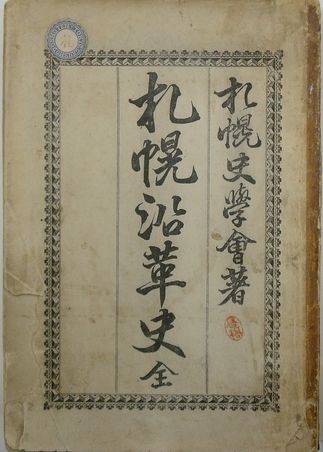 札幌史學會著
札幌沿革史 全